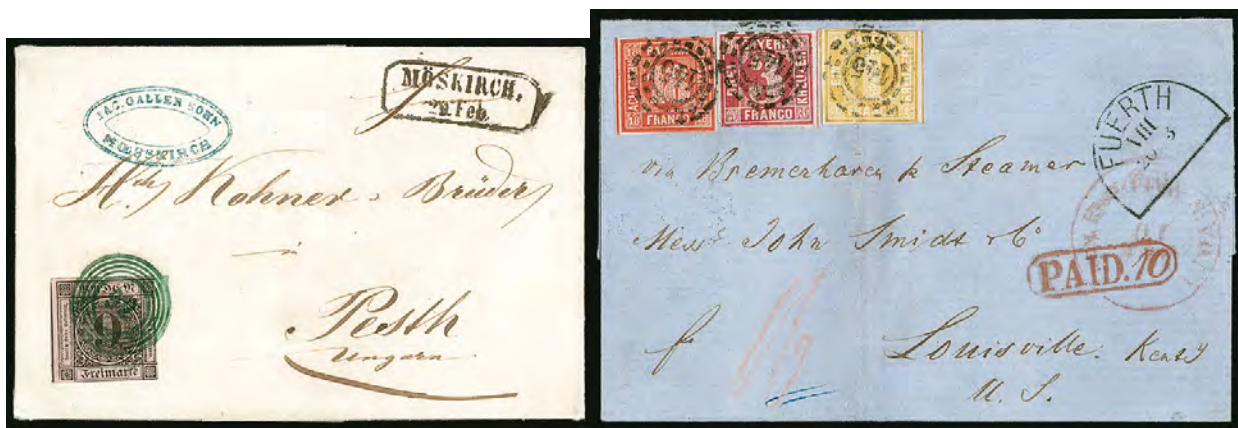 JAC. GALLEN SOHN
MOESSKIRCH
MÖSKIRCH.
20. Feb.
Kohner & Brüder
Pesth
Ungarn
9
Freimarke
18
FRANCO
BAYERN
KREUZER
FRANCO
145
FUERTH
VIII
20 5
via Bremerhaven p Steamer
Messrs John Smidt & Co
PAID. 10
Louisville. Kenty
U. S.